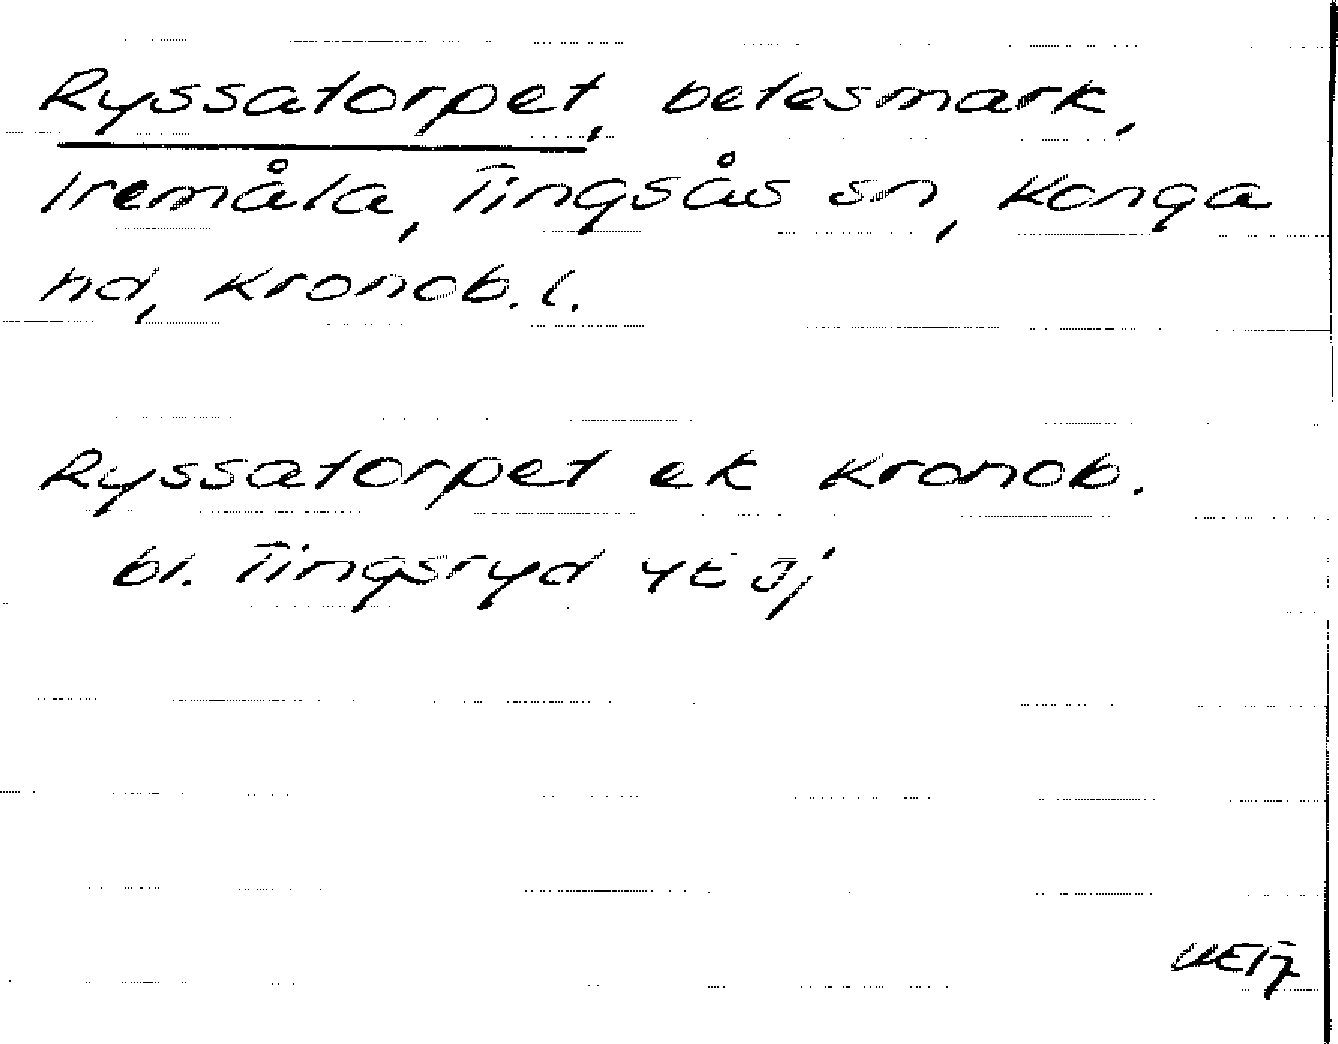 Ryssatorpet, betesmark,
Iremåla, Tingsås sn, Konga
hd, Kronob. l.
Ryssatorpet ek Kronob.
bl. Tingsryd 4E 3j